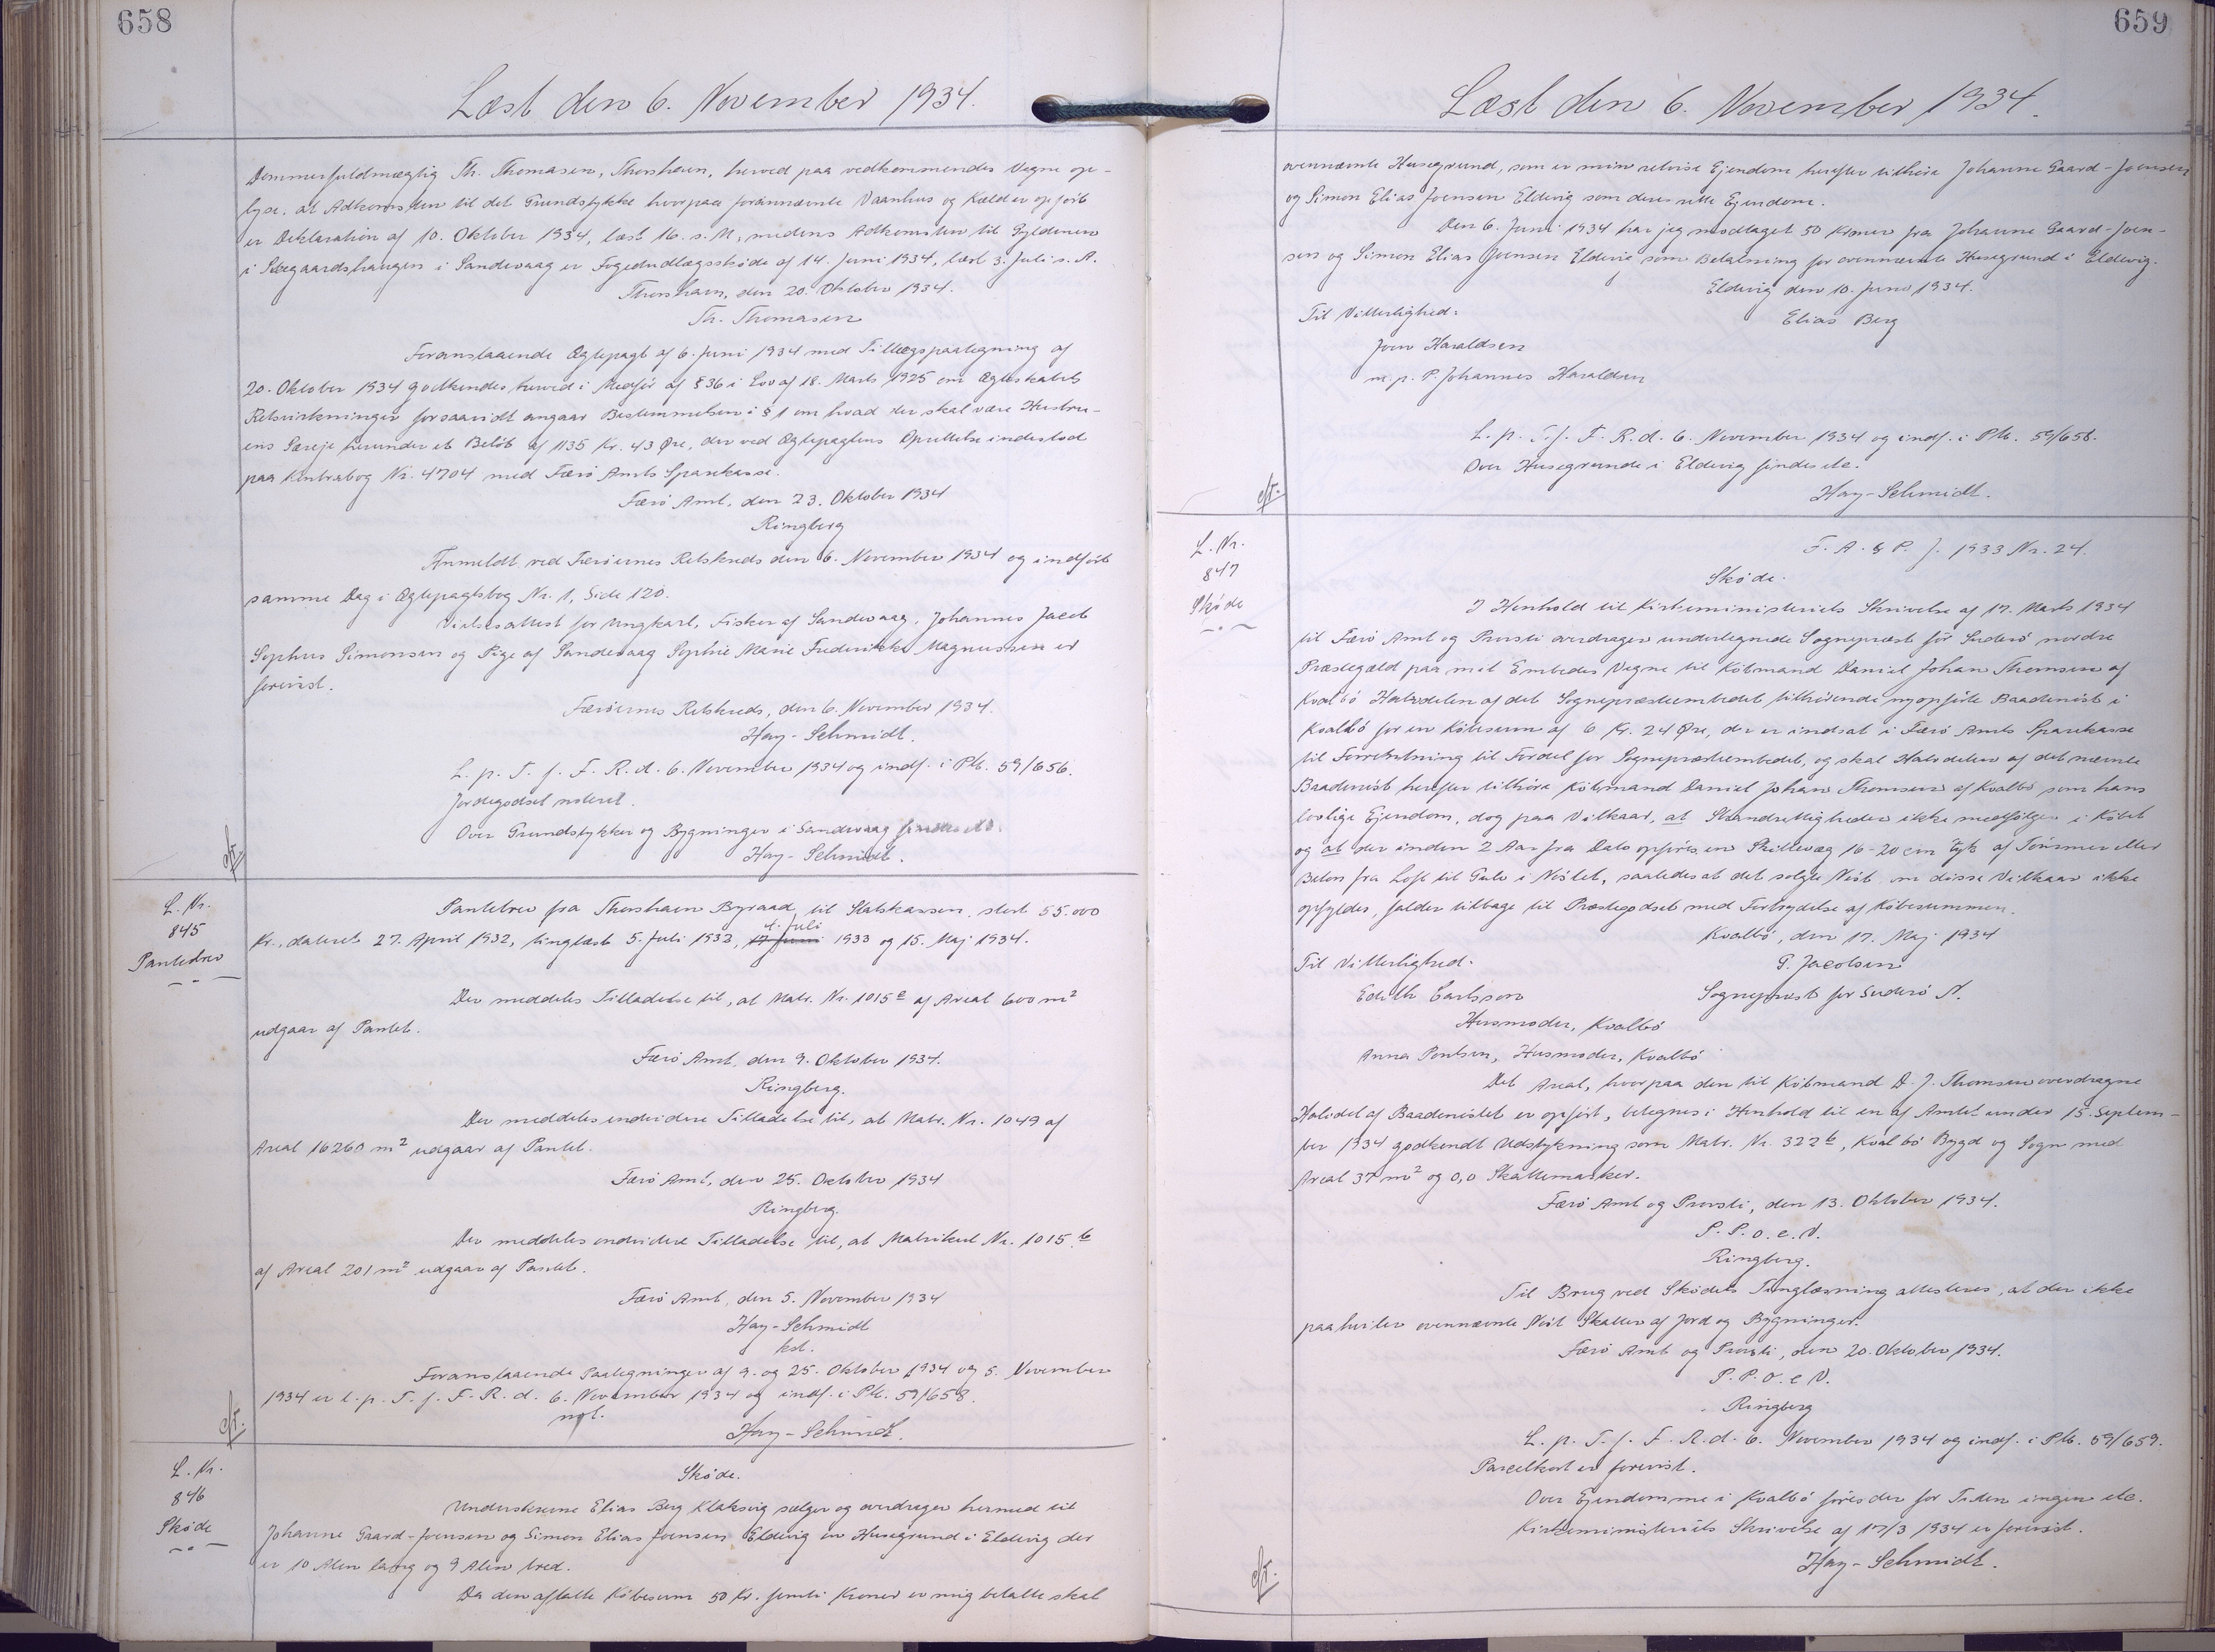 658
Læst den 6. November 1934.
Dommerfuldmægtig Th. Thomasen, Thorshavn, herved paa vedkommendes Vegne op-
lyse, at Adkomsten til det Grundstykke hvorpaa forannævnte Vaanhus og Kælder opført
er Deklaration af 10. Oktober 1934, læst 16. s. M., medens Adkomsten til Gyldenen
i Skægaardshaugen i Sandevaag er Fogedudlægsskøde af 14. Juni 1934, læst 3. Juli s. A.
Thorshavn, den 20. Oktober 1934.
Th. Thomasen
Foranstaaende Ægtepagt af 6. Juni 1934 med Tillægspaategning af
20. Oktober 1934 godkendes herved i Medfør af § 36 i Lov af 18. Marts 1925 om Ægteskabets
Retsvirkninger forsaavidt angaar Bestemmelsen i § 1 om hvad der skal være Hustru-
ens Særeje herunder et Beløb af 1135 Kr. 43 Øre, der ved Ægtepagtens Oprettelse indestod
paa Kontrabog Nr. 4704 med Færø Amts Sparekasse.
Færø Amt, den 23. Oktober 1934
Ringberg
Anmeldt ved Færøernes Retskreds den 6. November 1934 og indført
samme Dag i Ægtepagtsbog Nr. 1, Side 120.
Vielsesattest for Ungkarl, Fisker af Sandevaag, Johannes Jacob
Sophus Simonsen og Pige af Sandevaag Sophie Marie Frederikke Magnussen er
forevist.
Færøernes Retskreds, den 6. November 1934.
Hay-Schmidt.
L. p. T. f. F. R. d. 6. November 1934 og indf. i Ptb. 59/656.
Jordegodset noteret.
Over Grundstykker og Bygninger i Sandevaag findes etc.
Hay-Schmidt.
L. Nr.
845
Pantebrev
Pantebrev fra Thorshavn Byraad til Statskassen, stort 55.000
4. Juli
Kr., dateret 27. April 1932, tinglæst 5. Juli 1932, 17 Juni 1933 og 15. Maj 1934.
Der meddeles Tilladelse til, at Matr. Nr. 1015 e af Areal 600 m²
udgaar af Pantet.
Færø Amt, den 9. Oktober 1934.
Ringberg.
Der meddeles endvidere Tilladelse til, at Matr. Nr. 1049 af
Areal 16260 m² udgaar af Pantet.
Færø Amt, den 25. Oktober 1934
Ringberg.
Der meddeles endvidere Tilladelse til, at Matrikul Nr. 1015 b
af Areal 201 m² udgaar af Pantet.
Færø Amt, den 5. November 1934
Hay-Schmidt
kst.
Foranstaaende Paategninger af 9. og 25. Oktober 1934 og 5. November
1934 er l. p. T. f. F. R. d. 6. November 1934 og indf. i Ptb. 59/658.
not.
Hay-Schmidt.
L. Nr.
846
Skøde
Skøde.
Underskrevne Elias Berg Klaksvig sælger og overdrager hermed til
Johanne Gaard-Joensen og Simon Elias Joensen Eldevig en Husegrund i Eldevig der
er 10 Alen lang og 9 Alen bred.
Da den aftalte Købesum 50 Kr. femti Kroner er mig betalte skal
659
Læst den 6. November 1934.
ovennævnte Husegrund, som er min retvise Ejendom herefter tilhøre Johanne Gaard-Joensen
og Simon Elias Joensen Eldevig som deres rette Ejendom.
Den 6. Juni 1934 har jeg modtaget 50 Kroner fra Johanne Gaard-Joen-
sen og Simon Elias Joensen Eldevig som Betalning for ovennævnte Husegrund i Eldevig.
Eldvig den 10. Juni 1934.
Til Vitterlighed:
Elias Berg
Joen Haraldsen
m. p. P. Johannes Haraldsen
L. p. T. f. F. R. d. 6. November 1934 og indf. i Ptb. 59/658.
Over Husegrunde i Eldevig findes etc.
Hay-Schmidt.
L. Nr.
847
Skøde
F. A. & P. J. 1933 Nr. 24.
Skøde.
I Henhold til Kirkeministeriets Skrivelse af 17. Marts 1934
til Færø Amt og Provsti overdrager undertegnede Sognepræst for Suderø nordre
Præstegæld paa mit Embedes Vegne til Købmand Daniel Johan Thomsen af
Kvalbø Halvdelen af det Sognepræsteembedet tilhørende nyopførte Baadenøst i
Kvalbø for en Købesum af 6 Kr. 24 Øre, der er indsat i Færø Amts Sparekasse
til Forrentning til Fordel for Sognepræsteembedet, og skal Halvdelen af det nævnte
Baadenøst herefter tilhøre Købmand Daniel Johan Thomsen af Kvalbø som hans
lovlige Ejendom, dog paa Vilkaar, at Strandrettigheder ikke medfølger i Købet
og at der inden 2 Aar fra Dato opføres en Skillevæg 16-20 cm tyk af Tømmer eller
Beton fra Loft til Gulv i Nøstet, saaledes at det solgte Nøst, om disse Vilkaar ikke
opfyldes, falder tilbage til Præstegodset med Fortrydelse af Købesummen.
Kvalbø, den 17. Maj 1934
Til Vitterlighed:
P. Jacobsen
Edith Carlsson
Sognepræst for Suderø N.
Husmoder, Kvalbø
Anna Poulsen, Husmoder, Kvalbø
Det Areal, hvorpaa den til Købmand D. J. Thomsen overdragne
Halvdel af Baadenøstet er opført, betegnes i Henhold til en af Amtet under 15. Septem-
ber 1934 godkendt Udstykning som Matr. Nr. 322 b, Kvalbø Bygd og Sogn med
Areal 37 m² og 0,0 Skattemarker.
Færø Amt og Provsti, den 13. Oktober 1934.
P. P. o. e. V.
Ringberg.
Til Brug ved Skødets Tinglæsning attesteres, at der ikke
paahviler ovennævnte Nøst Skatter af Jord og Bygninger.
Færø Amt og Provsti, den 20. Oktober 1934.
P. P. o. e. V.
Ringberg
L. p. T. f. F. R. d. 6. November 1934 og indf. i Ptb. 59/659.
Parcelkort er forevist.
Over Ejendomme i Kvalbø føres der for Tiden ingen etc.
Kirkeministeriets Skrivelse af 17/3 1934 er forevist.
Hay-Schmidt.